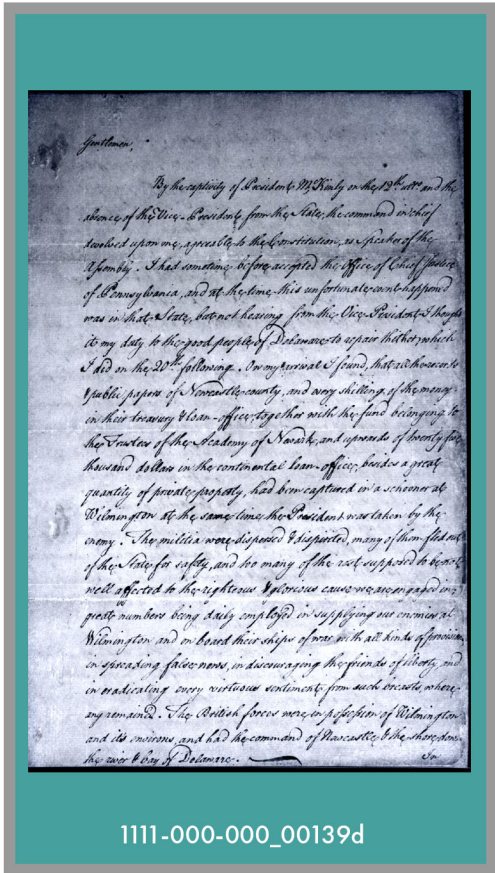 Gentlemen,
By the captivity of President McKinly on the 12th ulto and the
absence of the Vice-President from the State, the command in chief
devolved upon me, agreeable to the Constitution, as Speaker of the
Assembly. I had sometime before accepted the Office of Chief Justice
of Pennsylvania, and at the time this unfortunate event happened
was in that State, but not hearing from the Vice President I thought
it my duty to the good people of Delaware to repair thither, which
I did on the 20th following. On my arrival I found, that all the records
& public papers of Newcastle county, and every shilling of the money
in their treasury & loan-office, together with the fund belonging to
the Trustees of the Academy of Newark, and upwards of twenty five
thousand dollars in the continental loan-office, besides a great
quantity of private property, had been captured in a schooner at
Wilmington at the same time the President was taken by the
enemy. The militia were dispersed & dispirited, many of them fled out
of the State for safety, and too many of the rest supposed to be not
well affected to the righteous & glorious cause we are engaged in,
great numbers being daily employed in supplying our enemies at
Wilmington and on board their ships of war with all kinds of provisions,
in spreading false news, in discouraging the friends of liberty, and
in eradicating every virtuous sentiment from such breasts where
any remained. The British forces were in possession of Wilmington
and its environs, and had the command of Newcastle & the shore down
the river & bay of Delaware.
1111-000-000_00139d